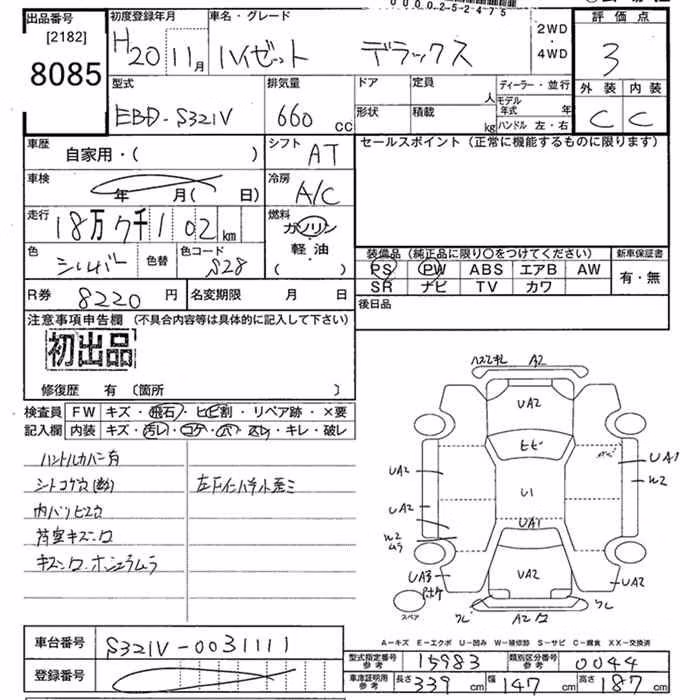 00002-52475
出品番号 初度登録年月 車名・グレード 評価点
[2182]
8085
H20 11月 ハイゼット デラックス 2WD・4WD 3
型式 排気量 ドア 定員 人 ディーラー・並行 外装 内装
EBD-S321V 660 cc 形状 積載 kg モデル年式 年 ハンドル 左・右 C C
車歴 自家用・( ) シフト AT セールスポイント(正常に機能するものに限ります)
車検 年 月( 日) 冷房 A/C
走行 18万7千102km 燃料 ガソリン・軽油 ( )
色 シルバー 色替 色コード S28
装備品(純正品に限り○をつけてください) 新車保証書
PS PW ABS エアB AW 有・無
SR ナビ TV カワ
R券 8220円 名変期限 月 日 後日品
注意事項申告欄(不具合内容等は具体的に記入して下さい)
初出品
修復歴 有〔箇所 〕
検査員 FW キズ・飛石・ヒビ割・リペア跡・×要
記入欄 内装 キズ・汚レ・コゲ・穴・スレ・キレ・破レ
ハンドルカバー有
シートコゲ穴(数)
内バリヒビ穴
荷室キズ・凹
キズ・凹・ボンコウムラ
A2
UA2
ヒビ
UA2 UA1
W2
U1
UA2 UA1
W2
ムラ
UA3 UA2 UA2
スペア
A2
A-キズ E-エクボ U-凹み W-補修跡 S-サビ C-腐食 XX-交換済
車台番号 S321V-0031111
型式指定番号 参考 15983 類別区分番号 参考 0044
登録番号
車庫証明用 参考 長さ 339cm 幅 147cm 高さ 187cm